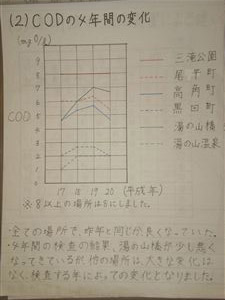 (2)CODの4年間の変化
(mgO/ℓ)
9
8
7
6
5
4
3
2
1
0
COD
17 18 19 20 (平成年)
三滝公園
尾平町
高角町
黒田町
湯の山橋
湯の山温泉
※8以上の場所は8にしました。
・全ての場所で、昨年と同じか良くなっていた。
・4年間の検査の結果、湯の山橋が少し悪く
なってきているが、他の場所は、大きな変化は
なく、検査する年によっての変化となりました。